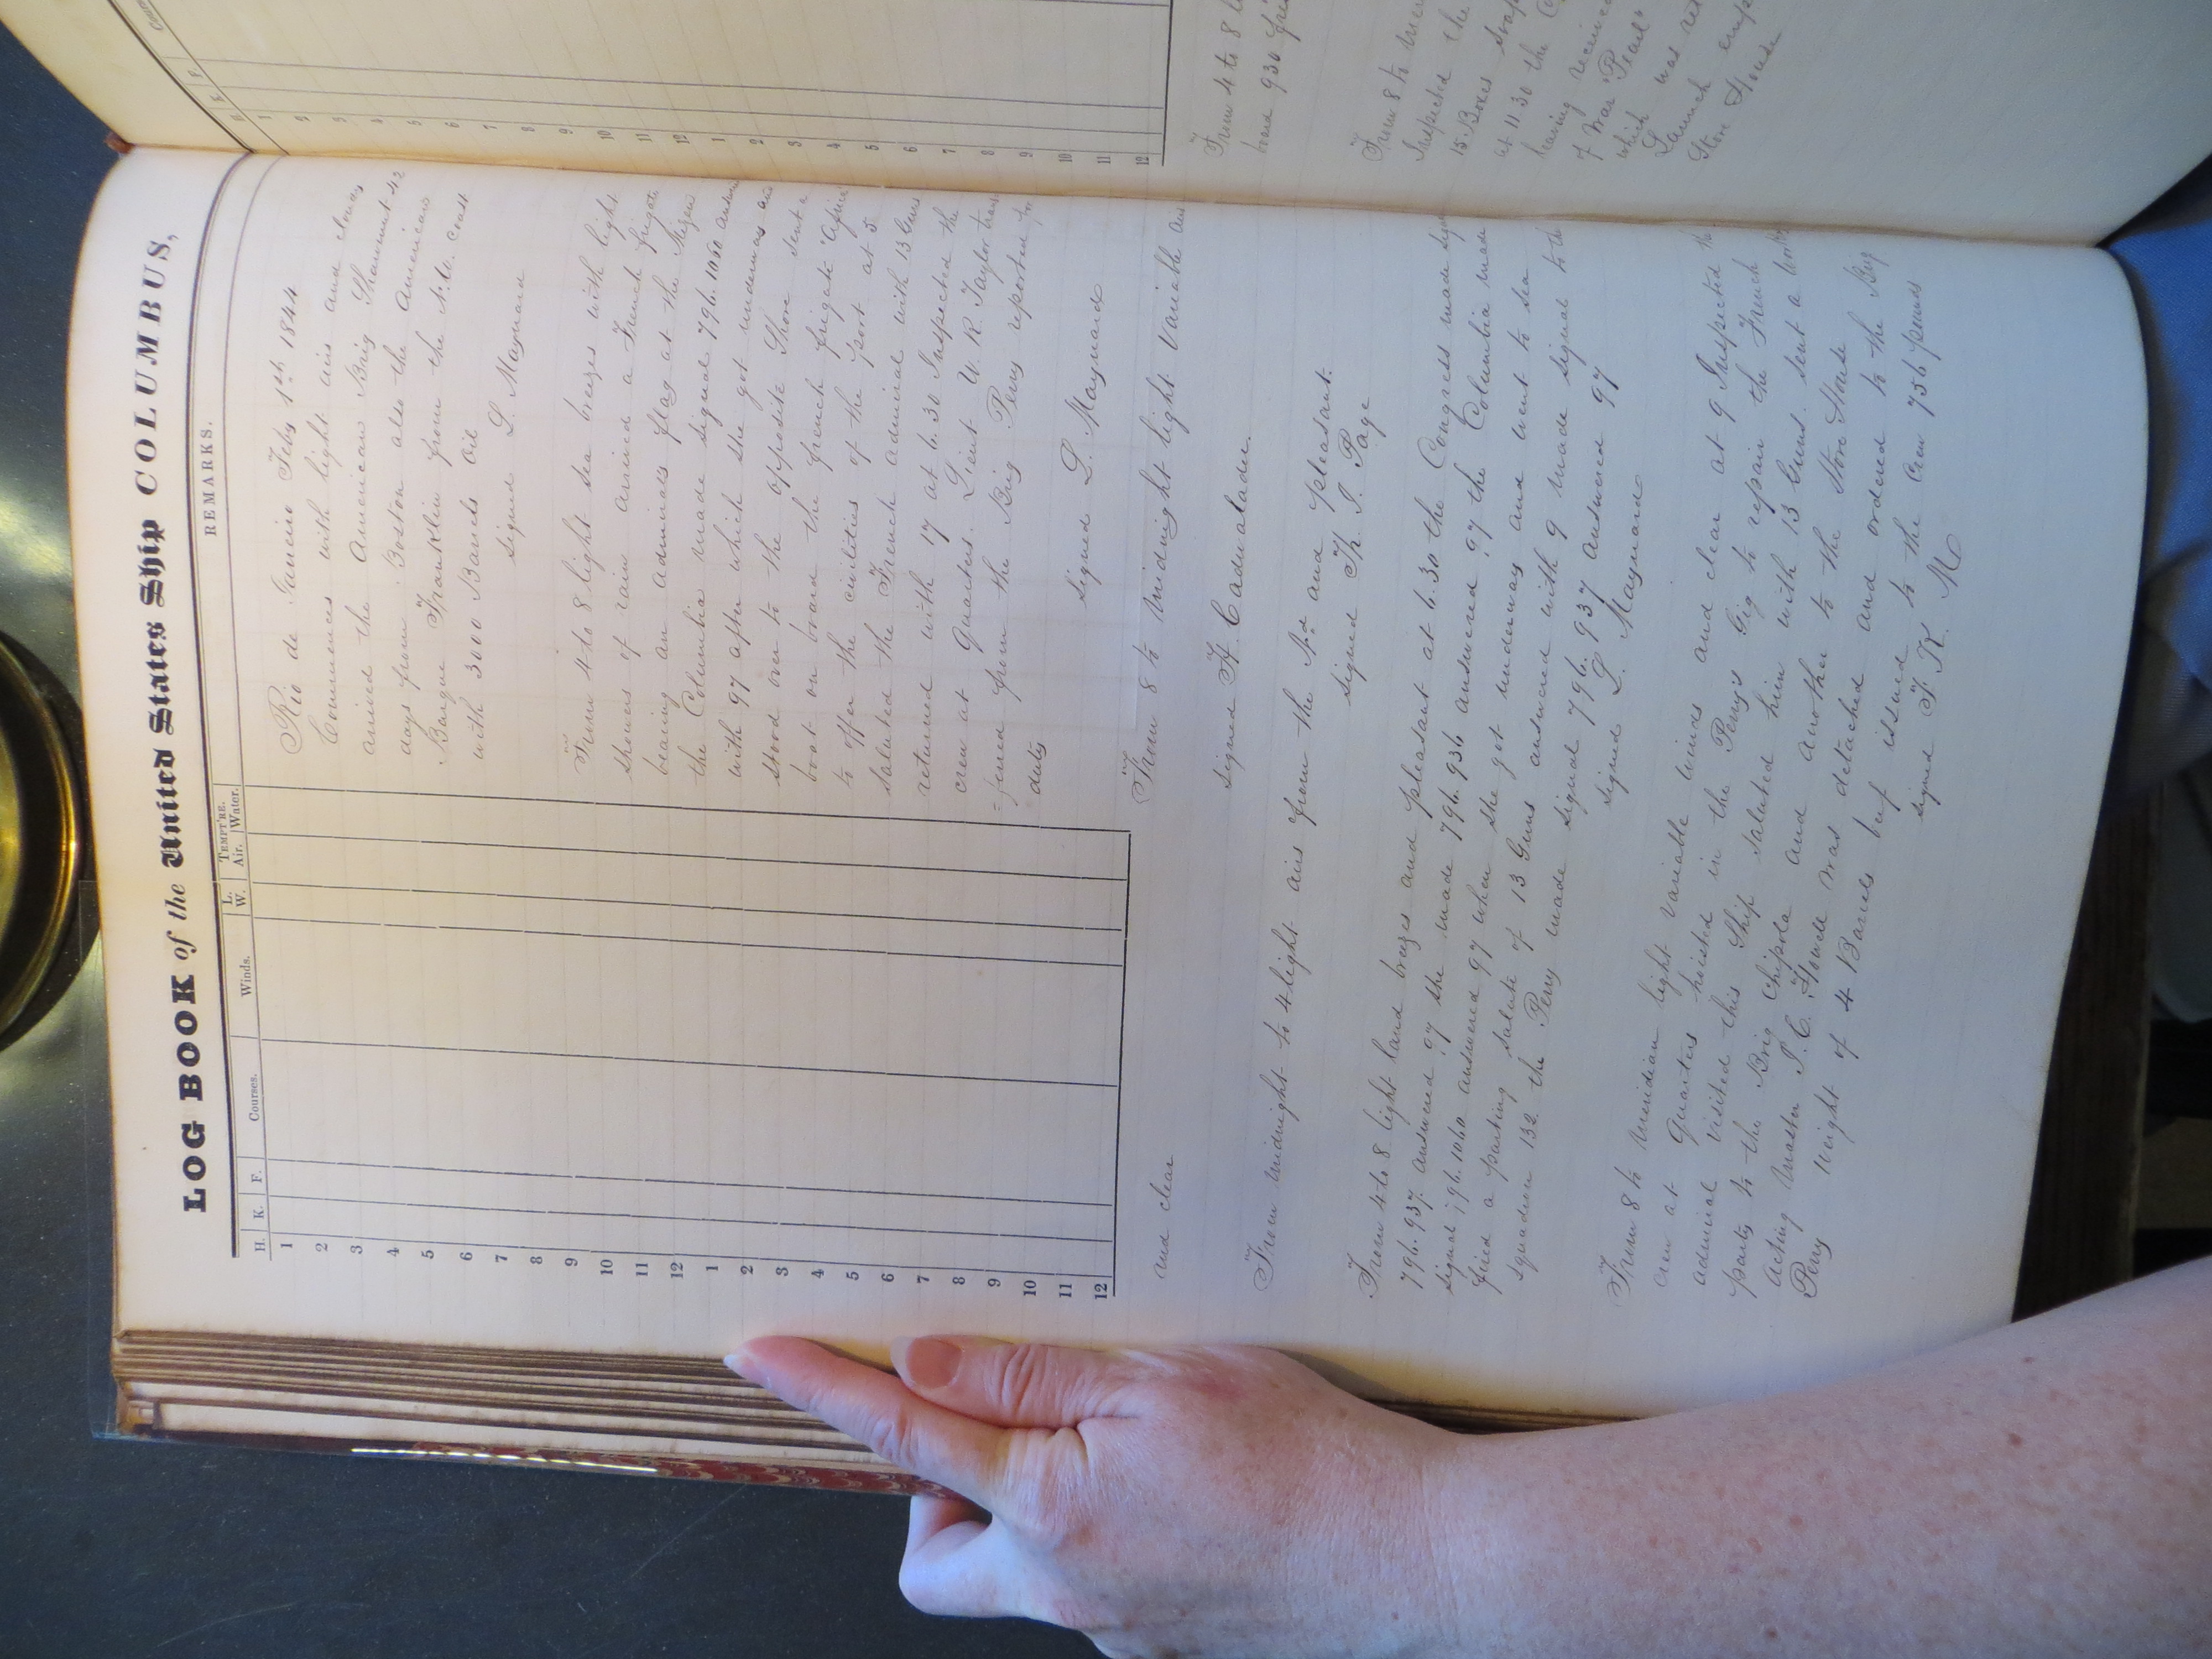 LOG BOOK of the United States Ship COLUMBUS,
H. K. F. Courses. Winds. L. W. TEMPT'RE. Air. Water. REMARKS.
1
2
3
4
5
6
7
8
9
10
11
12
1
2
3
4
5
6
7
8
9
10
11
12
Rio de Janeiro Feby 1st 1844
Commences with light airs and cloudy
arrived the American Brig Shawmut 42
days from Boston also the American
Barque Franklin from the N.W. coast
with 3000 Barrels Oil
signed L. Maynard
From 4 to 8 light sea breezes with light
showers of rain arrived a French frigate
bearing an admirals flag at the Mizen
the Columbia made signal 796.1060 answd
with 97 after which she got underway and
stood over to the opposite Shore sent a
boat on board the french frigate
to offer the civilities of the port at 5
saluted the French admiral with 13 Guns
returned with 17 at 6.30 Inspected the
crew at Quarters. Lieut W. R. Taylor trans
=fered from the Brig Perry reported for
duty
signed L. Maynard
From 8 to Midnight light Variable airs
and clear
signed H. Cadwalader.
From Midnight to 4 light airs from the Nd and pleasant.
signed Th. J. Page
From 4 to 8 light land breezes and pleasant at 6.30 the Congress made
796.937 answered 97 she made 796.936 answered 97 the Columbia made
signal 796.1060 answered 97 when she got underway and went to sea
fired a parting salute of 13 Guns answered with 9 made signal to the
squadron 132 the Perry made signal 796.937 answered 97
signed L. Maynard
From 8 to Meridian light Variable winds and clear at 9 Inspected the
crew at Quarters hoisted in the Perry's Gig to repair the French
admiral visited this Ship saluted him with 13 Guns. sent a
party to the Brig Chipola and another to the Store House
acting Master J. C. Howell was detached and ordered to the Brig
Perry weight of 4 Barrels beef issued to the crew 756 pounds
signed J. K. M
From 4 to 8
board 930
From 8 to Mer
Inspected the
15 Boxes Soap
at 11 30 the
having receive
of War "Pearl"
which was
Launch
Store House
1
2
3
4
5
6
7
8
9
10
11
12
1
2
3
4
5
6
7
8
9
10
11
12